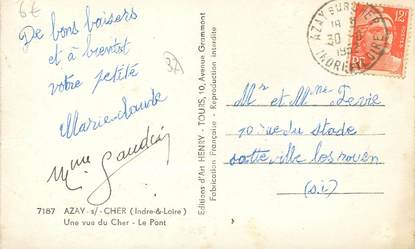 6€
De bons baisers
et à bientôt
votre petite
Marie-claude
Mme Gaudin
37
7187 AZAY-s/-CHER (Indre-&-Loire)
Une vue du Cher - Le Pont
Editions d'Art HENRY - TOURS, 10, Avenue Grammont
Fabrication Française - Reproduction interdite
AZAY SUR CHER
18 H
30
INDRE ET LOIRE
12F
Mr et Mme
10 rue du stade
sotteville les rouen
(S.I)